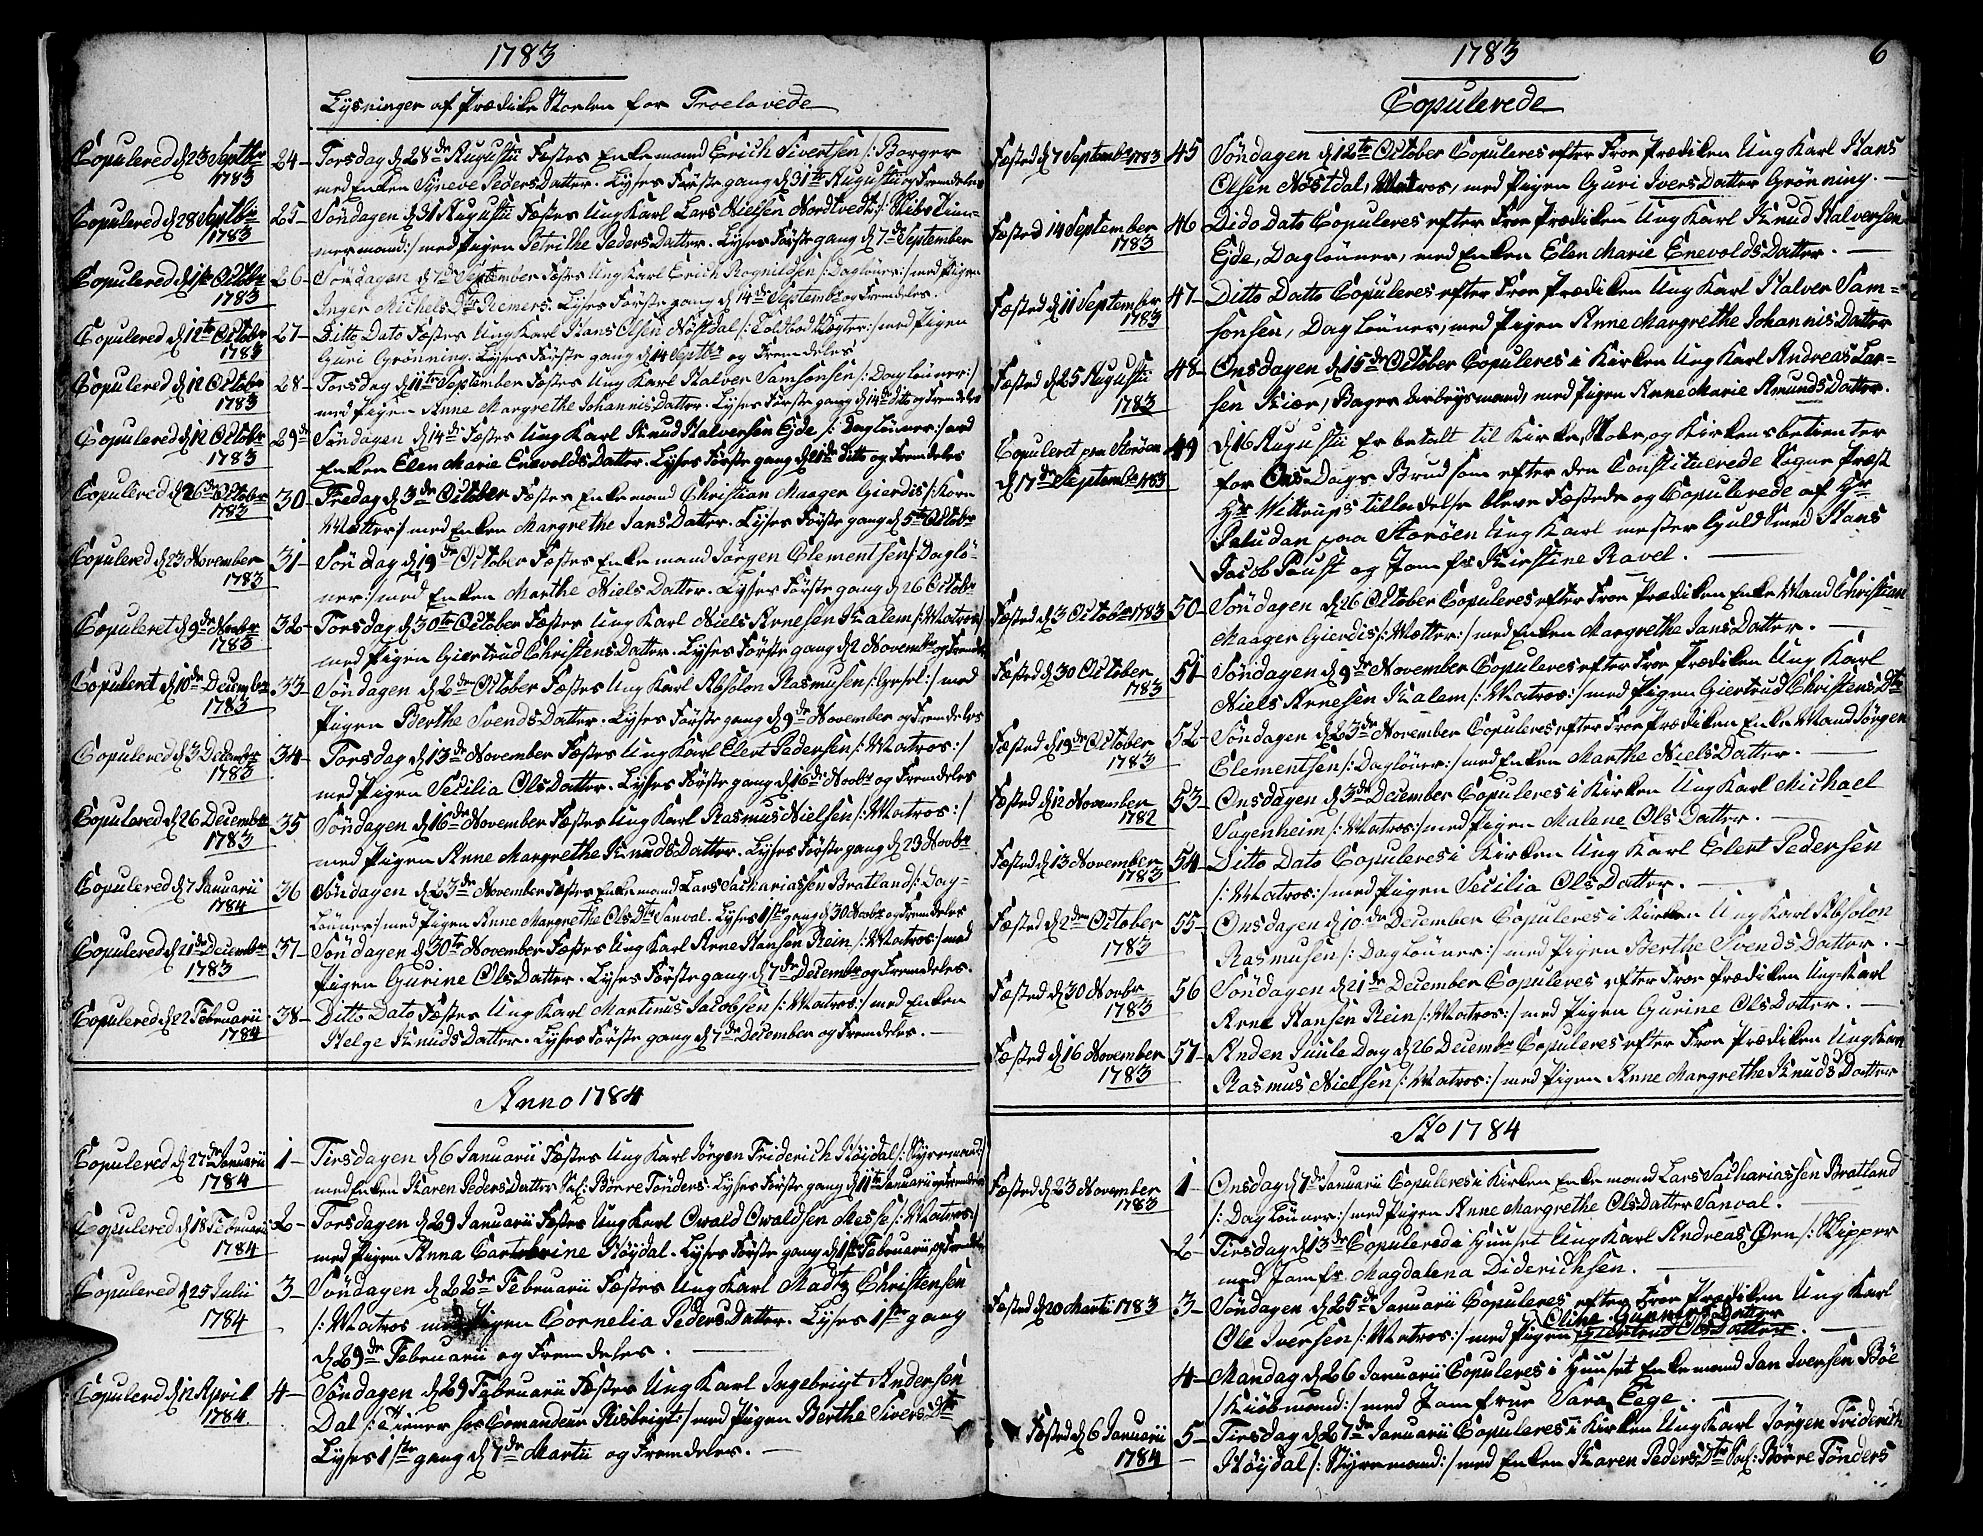 1783
Lysninger af Prædike Stoelen for Troelovede
Copulered d 23 Septbr 1783
24- Torsdag d 28de Augustii Fæstes Enkemand Erich Sivertsen /: Borger
med Enken Syneve Peders Datter. Lyses Første gang d 31te Augustii og Fremdeles
Copulered d 28 Septbr 1783
25- Søndagen d 31 Augustii Fæstes Ung Karl Lars Nielsen Nordtvedt /: Skibs Tim-
mermand :/ med Pigen Petrilke Peders Datter. Lyses Første gang d 7de September
Copulered d 1ste Octbr 1783
26- Søndagen d 7de September Fæstes Ung Karl Erich Rognildsen /: Dagløner :/ med Pigen
Inger Michels Dtr Remers. Lyses Første gang d 14de Septembr og Fremdeles.
Copulered d 12te October 1783
27- Ditto Dato Fæstes Ung Karl Hans Olsen Nøstdal /: Toldbod Vægter :/ med Pigen
Guri Grønning. Lyses Første gang d 14 Septbr og Fremdeles
Copulered d 12 Octobr 1783
28- Torsdag d 11te September Fæstes Ung Karl Halver Samsonsen /: Daglønner :/
med Pigen Anne Margrethe Johannis Datter. Lyses Første gang d 14de Ditto og Fremdeles
Copulered d 12 Octobr 1783
29de Søndagen d 14de Fæstes Ung Karl Knud Halversen Ejde /: Daglønner :/ med
Enken Elen Marie Enevolds Datter. Lyses Første gang d 21de Ditto og Fremdeles
Copulered d 26de October 1783
30- Fredag d 3de October Fæstes Enkemand Christian Maager Gierdis /: Korn
Mætter :/ med Enken Margrethe Jans Datter. Lyses Første gang d 5te Octobr
Copulered d 23 November 1783
31- Søndag d 19de October Fæstes Enkemand Jørgen Clementsen /: Daglø-
ner :/ med Enken Marthe Niels Datter. Lyses Første gang d 26 Octobr
Copuleret d 9de Novbr 1783
32- Torsdag d 30te October Fæstes Ung Karl Niels Arnesen Kalem /: Matros :/
med Pigen Giertrud Christens Datter. Lyses Første gang d 2 Novembr og Fremdeles
Copuleret d 10de Decembr 1783
33- Søndagen d 2den October Fæstes Ung Karl Absolon Rasmusen /: Gesel :/ med
Pigen Berthe Svends Datter. Lyses Første gang d 9de November og Fremdeles
Copulered d 3 Decembr 1783
34- Torsdag d 13de November Fæstes Ung Karl Elert Pedersen /: Matros :/
med Pigen Secilia Ols Datter. Lyses Første gang d 16de Novbr og Fremdeles
Copulered d 26 Decembr 1783
35 Søndagen d 16de November Fæstes Ung Karl Rasmus Nielsen /: Matros :/
med Pigen Anne Margrethe Knuds Datter. Lyses Første gang d 23 Novbr
Copulered d 7 Januarii 1784
36 Søndagen d 23de November Fæstes Enkemand Lars Sachariassen Bratland /: Dag-
lønner :/ med Pigen Anne Margrethe Ols Dtr Sanval. Lyses 1ste gang d 30 Novbr og Fremdeles
Copulered d 21de Decembr 1783
37- Søndagen d 30te November Fæstes Ung Karl Arne Hansen Rein /: Matros :/ med
Pigen Gurine Ols Datter. Lyses Første gang d 7de Decembr og Fremdeles.
Copulered d 22 Februarii 1784
38- Ditto Dato Fæstes Ung Karl Martinus Jacobsen /: Matros :/ med Enken
Helge Knuds Datter. Lyses Første gang d 7de December og Fremdeles.
Anno 1784
Copulered d 27de Januarii 1784
1- Tirsdagen d 6 Januarii Fæstes Ung Karl Jørgen Friderich Høydal /: Styrremand :/
med Enken Karen Peders Datter Sal: Børre Tønders. Lyses Første gang d 11te Januarii og Fremdeles
Copulered d 18 Februarii 1784
2- Torsdagen d 29 Januarii Fæstes Ung Karl Owald Owaldsen Messe /: Matros :/
med Pigen Anna Cathrine Høydal. Lyses Første gang d 1ste Februarii og Fremdeles
Copulered d 25 Julii 1784
3- Søndagen d 22de Februarii Fæstes Ung Karl Madtz Christensen
/: Matros med Pigen Cornelia Peders Datter. Lyses 1ste gang
d 29de Februarii og Fremdeles.
Copulered d 12 April 1784
4- Søndagen d 29 Februarii Fæstes Ung Karl Ingebrigt Andersen
Dal /: Tiener hos Comandeur Risbrigt :/ med Pigen Berthe Sivers Dtr
Lyses 1ste gang d 7de Martii og Fremdeles.
1783
6
Copulerede
Fæsted d 7 Septembr 1783
45 Søndagen d 12te October Copuleres efter Froe Prædiken Ung Karl Hans
Olsen Nøstdal, Matros, med Pigen Guri Ivers Datter Grønning.
Fæsted 14 September 1783
46 Dido Dato Copuleres efter Froe Prædiken Ung Karl Knud Halversen
Ejde, Daglønner, med Enken Elen Marie Enevolds Datter.
Fæsted d 11 September 1783
47- Ditto Datto Copuleres efter Froe Prædiken Ung Karl Halver Sam-
sonsen, Daglønner, med Pigen Anne Margrethe Johannis Datter
Fæsted d 25 Augustii 1783
48- Onsdagen d 15de October Copuleres i Kirken Ung Karl Andreas Lar-
sen Kier, Bager, med Pigen Anne Marie Amunds Datter.
Copulert paa Storøen d 17de Septembr 1783
49 d 16 Augustii Er betalt til Kirke, Skole, og Kirkens betienter
for Ons Dags Brud som efter den Constituerede Sogne Præst
Hr Wittrups tilladelse bleve Fæstede og Copulerede af Hr
Paludan paa Storøen Ung Karl mester Guld Smed Hans
Jacob Paust og Jomfr Kirstine Ravel.
Fæsted d 3 Octobr 1783
50- Søndagen d 26 October Copuleres efter Froe Prædiken Enke Mand Christian
Maager Gierdis /: Mætter :/ med Enken Margrethe Jans Datter.
Fæsted d 30 October 1783
51 Søndagen d 9de November Copuleres efter Froe Prædiken Ung Karl
Niels Arnesen Kalem /: Matros :/ med Pigen Giertrud Christens Dtr
Fæsted d 19de October 1783
52- Søndagen d 23de November Copuleres efter Froe Prædiken Enke Mand Jørgen
Clementsen /: Dagløner :/ med Enken Marthe Niels Datter.
Fæsted d 12 November 1782
53- Onsdagen d 3de December Copuleres i Kirken Ung Karl Michael
Sagenheim /: Matros :/ med Pigen Malene Ols Datter.
Fæsted d 13 November 1783
54- Ditto Dato Copuleres i Kirken Ung Karl Elert Pedersen
/: Matros :/ med Pigen Secilia Ols Datter.
Fæsted d 2den October 1783
55- Onsdagen d 10de December Copuleres i Kirken Ung Karl Absolon
Rasmusen /: Daglønner :/ med Pigen Berthe Svends Datter.
Fæsted d 30 Novbr 1783
56 Søndagen d 21de December Copuleres efter Froe Prædiken Ung-Karl
Arne Hansen Rein /: Matros :/ med Pigen Gurine Ols Datter.
Fæsted d 16 November 1783
57- Anden Juule Dag d 26 Decembr Copuleres efter Froe Prædiken Ung Karl
Rasmus Nielsen /: Matros :/ med Pigen Anne Margrethe Knuds Datter
Ao 1784
Fæsted d 23 November 1783
1- Onsdag d 7de Januarii Copuleres i Kirken Enkemand Lars Sachariassen Bratland
/: Daglønner :/ med Pigen Anne Margrethe Ols Datter Sanval.
2- Tirsdag d 13de Copulered i Huuset Ung Karl Andreas Ørn /: Skipper
med Jomfr. Magdalena Diderichsen.
Fæsted d 20 Martii 1783
3- Søndagen d 25de Januarii Copuleres efter Froe Prædiken Ung Karl
Ole Iversen /: Matros :/ med Pigen Giertrud Ols Datter. Eline Gunners Datter
4- Mandag d 26 Januarii Copuleres i Huuset Enkemand Jan Iversen Bøe
/: Kiøbmand :/ med Jomfrue Sara Ege.
Fæsted d 6 Januarii 1784
5- Tirsdag d 27de Januarii Copuleres i Kirken Ung Karl Jørgen Friderich
Høydal /: Styrremand :/ med Enken Karen Peders Dtr Sal: Børre Tønders